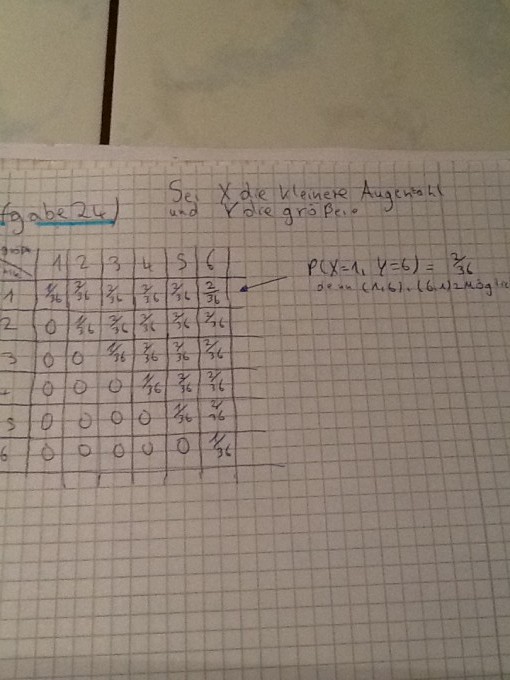 fgabe 24)
Sei X die kleinere Augenzahl
und Y die größere.
größ 1 2 3 4 5 6
1 1/36 2/36 2/36 2/36 2/36 2/36
2 0 1/36 2/36 2/36 2/36 2/36
3 0 0 1/36 2/36 2/36 2/36
0 0 0 1/36 2/36 2/36
5 0 0 0 0 1/36 2/36
6 0 0 0 0 0 1/36
P(X=1, Y=6) = 2/36
denn (1,6), (6,1) 2 mögli